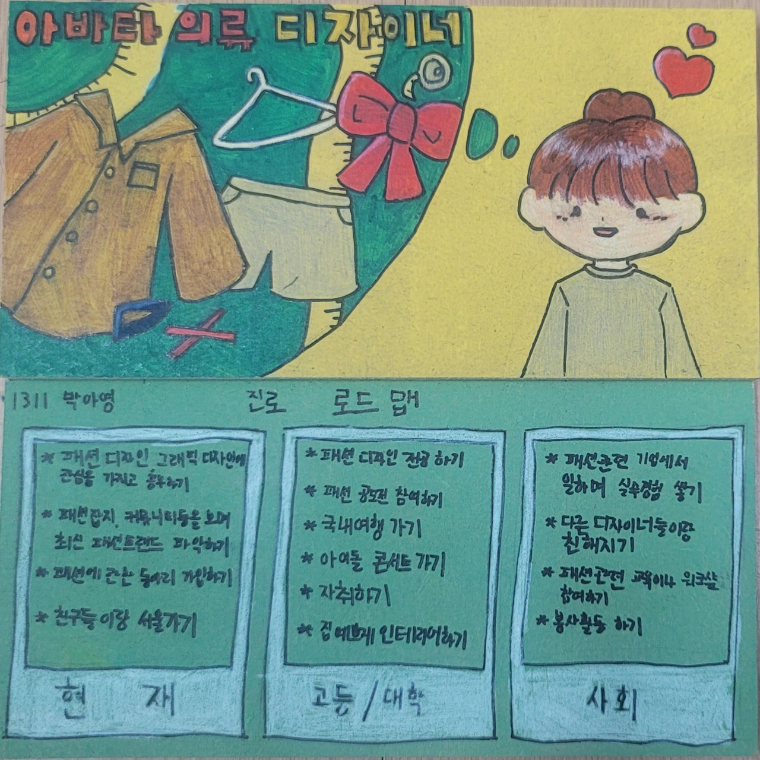 아바타 의류 디자이너
1311 박아영
진로 로드 맵
* 패션 디자인 그래픽 디자인에
관심을 가지고 공부하기
* 패션잡지, 커뮤니티등을 보며
최신 패션트렌드 파악하기
* 패션에 관한 동아리 가입하기
* 친구들이랑 서울가기
현 재
* 패션 디자인 전공 하기
* 패션 공모전 참여하기
* 국내여행 가기
* 아이돌 콘서트 가기
* 자취하기
* 집 예쁘게 인테리어하기
고등/대학
* 패션관련 기업에서
일하며 실무경험 쌓기
* 다른 디자이너들이랑
친해지기
* 패션관련 교육이나 워크샵
참여하기
* 봉사활동 하기
사회